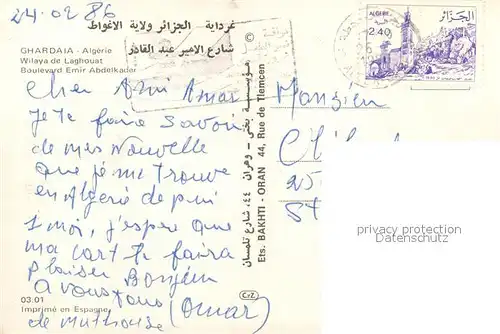 24.02 86
غرداية - الجزائر ولاية الاغواط
شارع الامير عبد القادر
GHARDAIA - Algérie
Wilaya de Laghouat
Boulevard Emir Abdelkader
Cher Ami Amar
Je te faire savoir
de mes Nouvelle
que je me trouve
en Algérie depui
1 moi, j'espère que
ma cart te faira
plaisir Bonjour
a vous tous (Omar)
de Mulhouse
03.01
Imprimé en Espagne
CYZ
©
مؤسسة بختي - وهران ٤٤، شارع تلمسان
Ets. BAKHTI - ORAN 44, Rue de Tlemcen
ALGERIE
الجزائر
2.40
Monsieur
25
privacy protection
Datenschutz